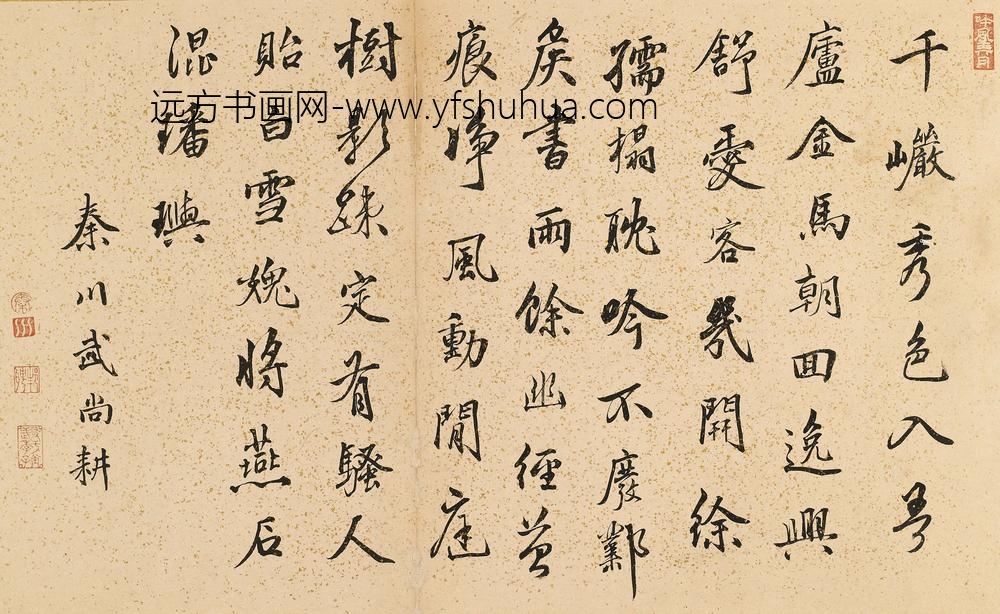 千巘秀色入弩
廬金馬朝回逸興
舒愛客幾開徐
孺榻耽吟不廢鄴
矦書雨餘幽徑苔
痕浄風動閒庭
樹影踈定有騷人
貽白雪媿將燕石
混璠璵
秦川武尚耕
远方书画网-www.yfshuhua.com